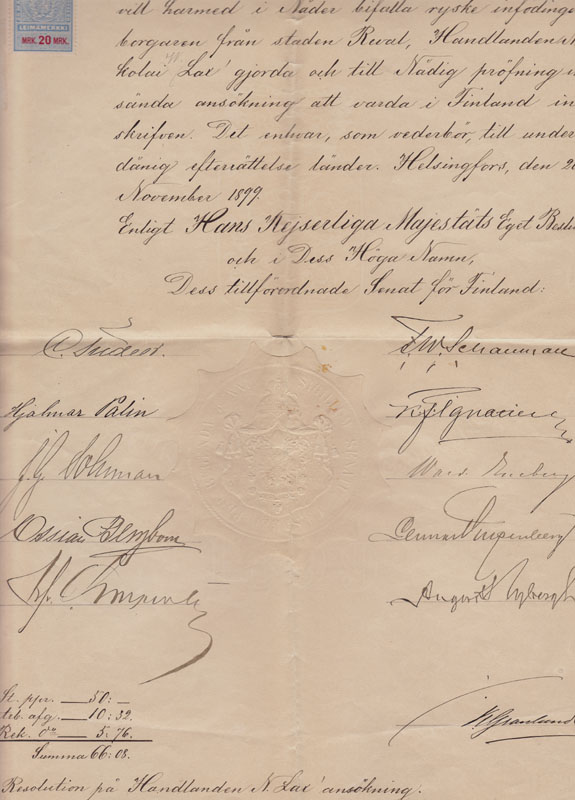 MRK. 20 MRK.
vill härmed i Nåder bifalla ryske infödinge
borgaren från staden Reval, Handlanden Ni
kolai Lax' gjorda och till Nådig pröfning in
sända ansökning att varda i Finland in
skrifven. Det enhvar, som vederbör, till under
dånig efterrättelse länder. Helsingfors, den 2
November 1899.
Enligt Hans Kejserliga Majestäts Eget Beslu
och i Dess Höga Namn,
Dess tillförordnade Senat för Finland:
C. Tudeer.
F. W. Schauman
Hjalmar Palin
Ossian Bergbom
Lennart Gripenberg
August Nybergh
St. ppr. — 50: —
afg. — 10: 32.
5: 76.
Summa 66: 08.
Resolution på Handlanden N. Lax' ansökning.